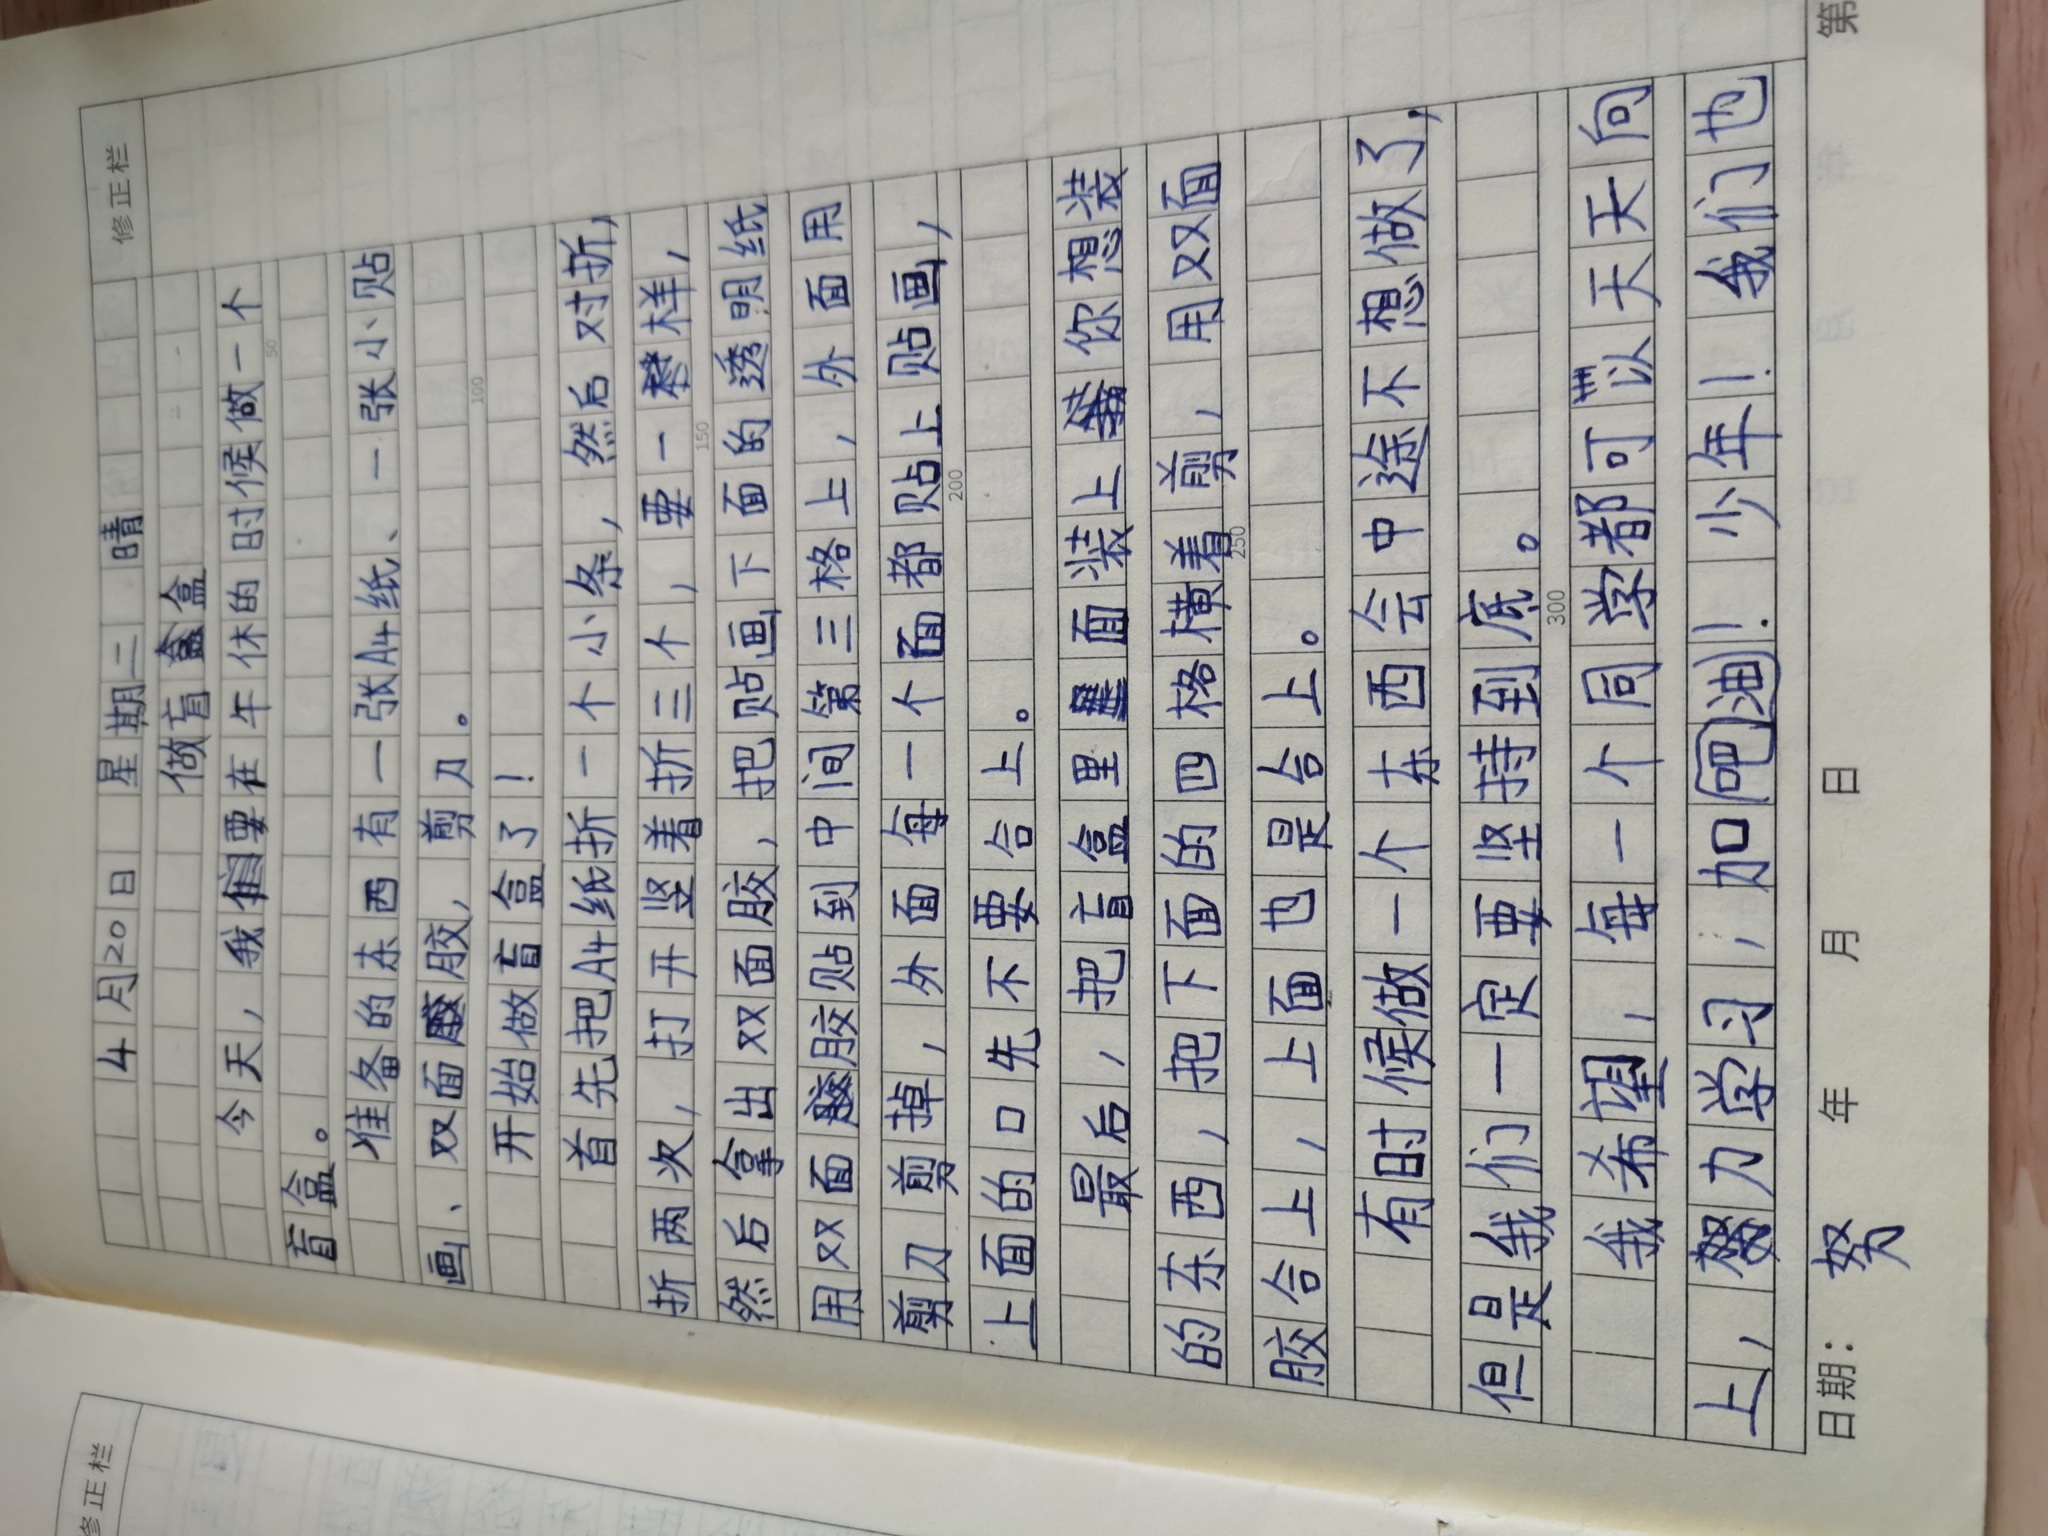 修正栏
4月20日 星期二 晴
做盲盒
今天，我要在午休的时候做一个
盲盒。
准备的东西有一张A4纸、一张小贴
画、双面胶，剪刀。
开始做盲盒了！
首先把A4纸折一个小条，然后对折，
折两次，打开竖着折三个，要一样，
然后拿出双面胶，把贴画下面的透明纸
用双面胶贴到中间第三格上，外面用
剪刀剪掉，外面每一个面都贴上贴画，
上面的口先不要合上。
最后，把盲盒里面装上你想装
的东西，把下面的四格横着剪，用双面
胶合上，上面也是合上。
有时候做一个东西会中途不想做了，
但是我们一定要坚持到底。
我希望，每一个同学都可以天天向
上，努力学习，加油吧！少年！我们也
日期： 年 月 日 第
50
100
150
200
250
300
修正栏